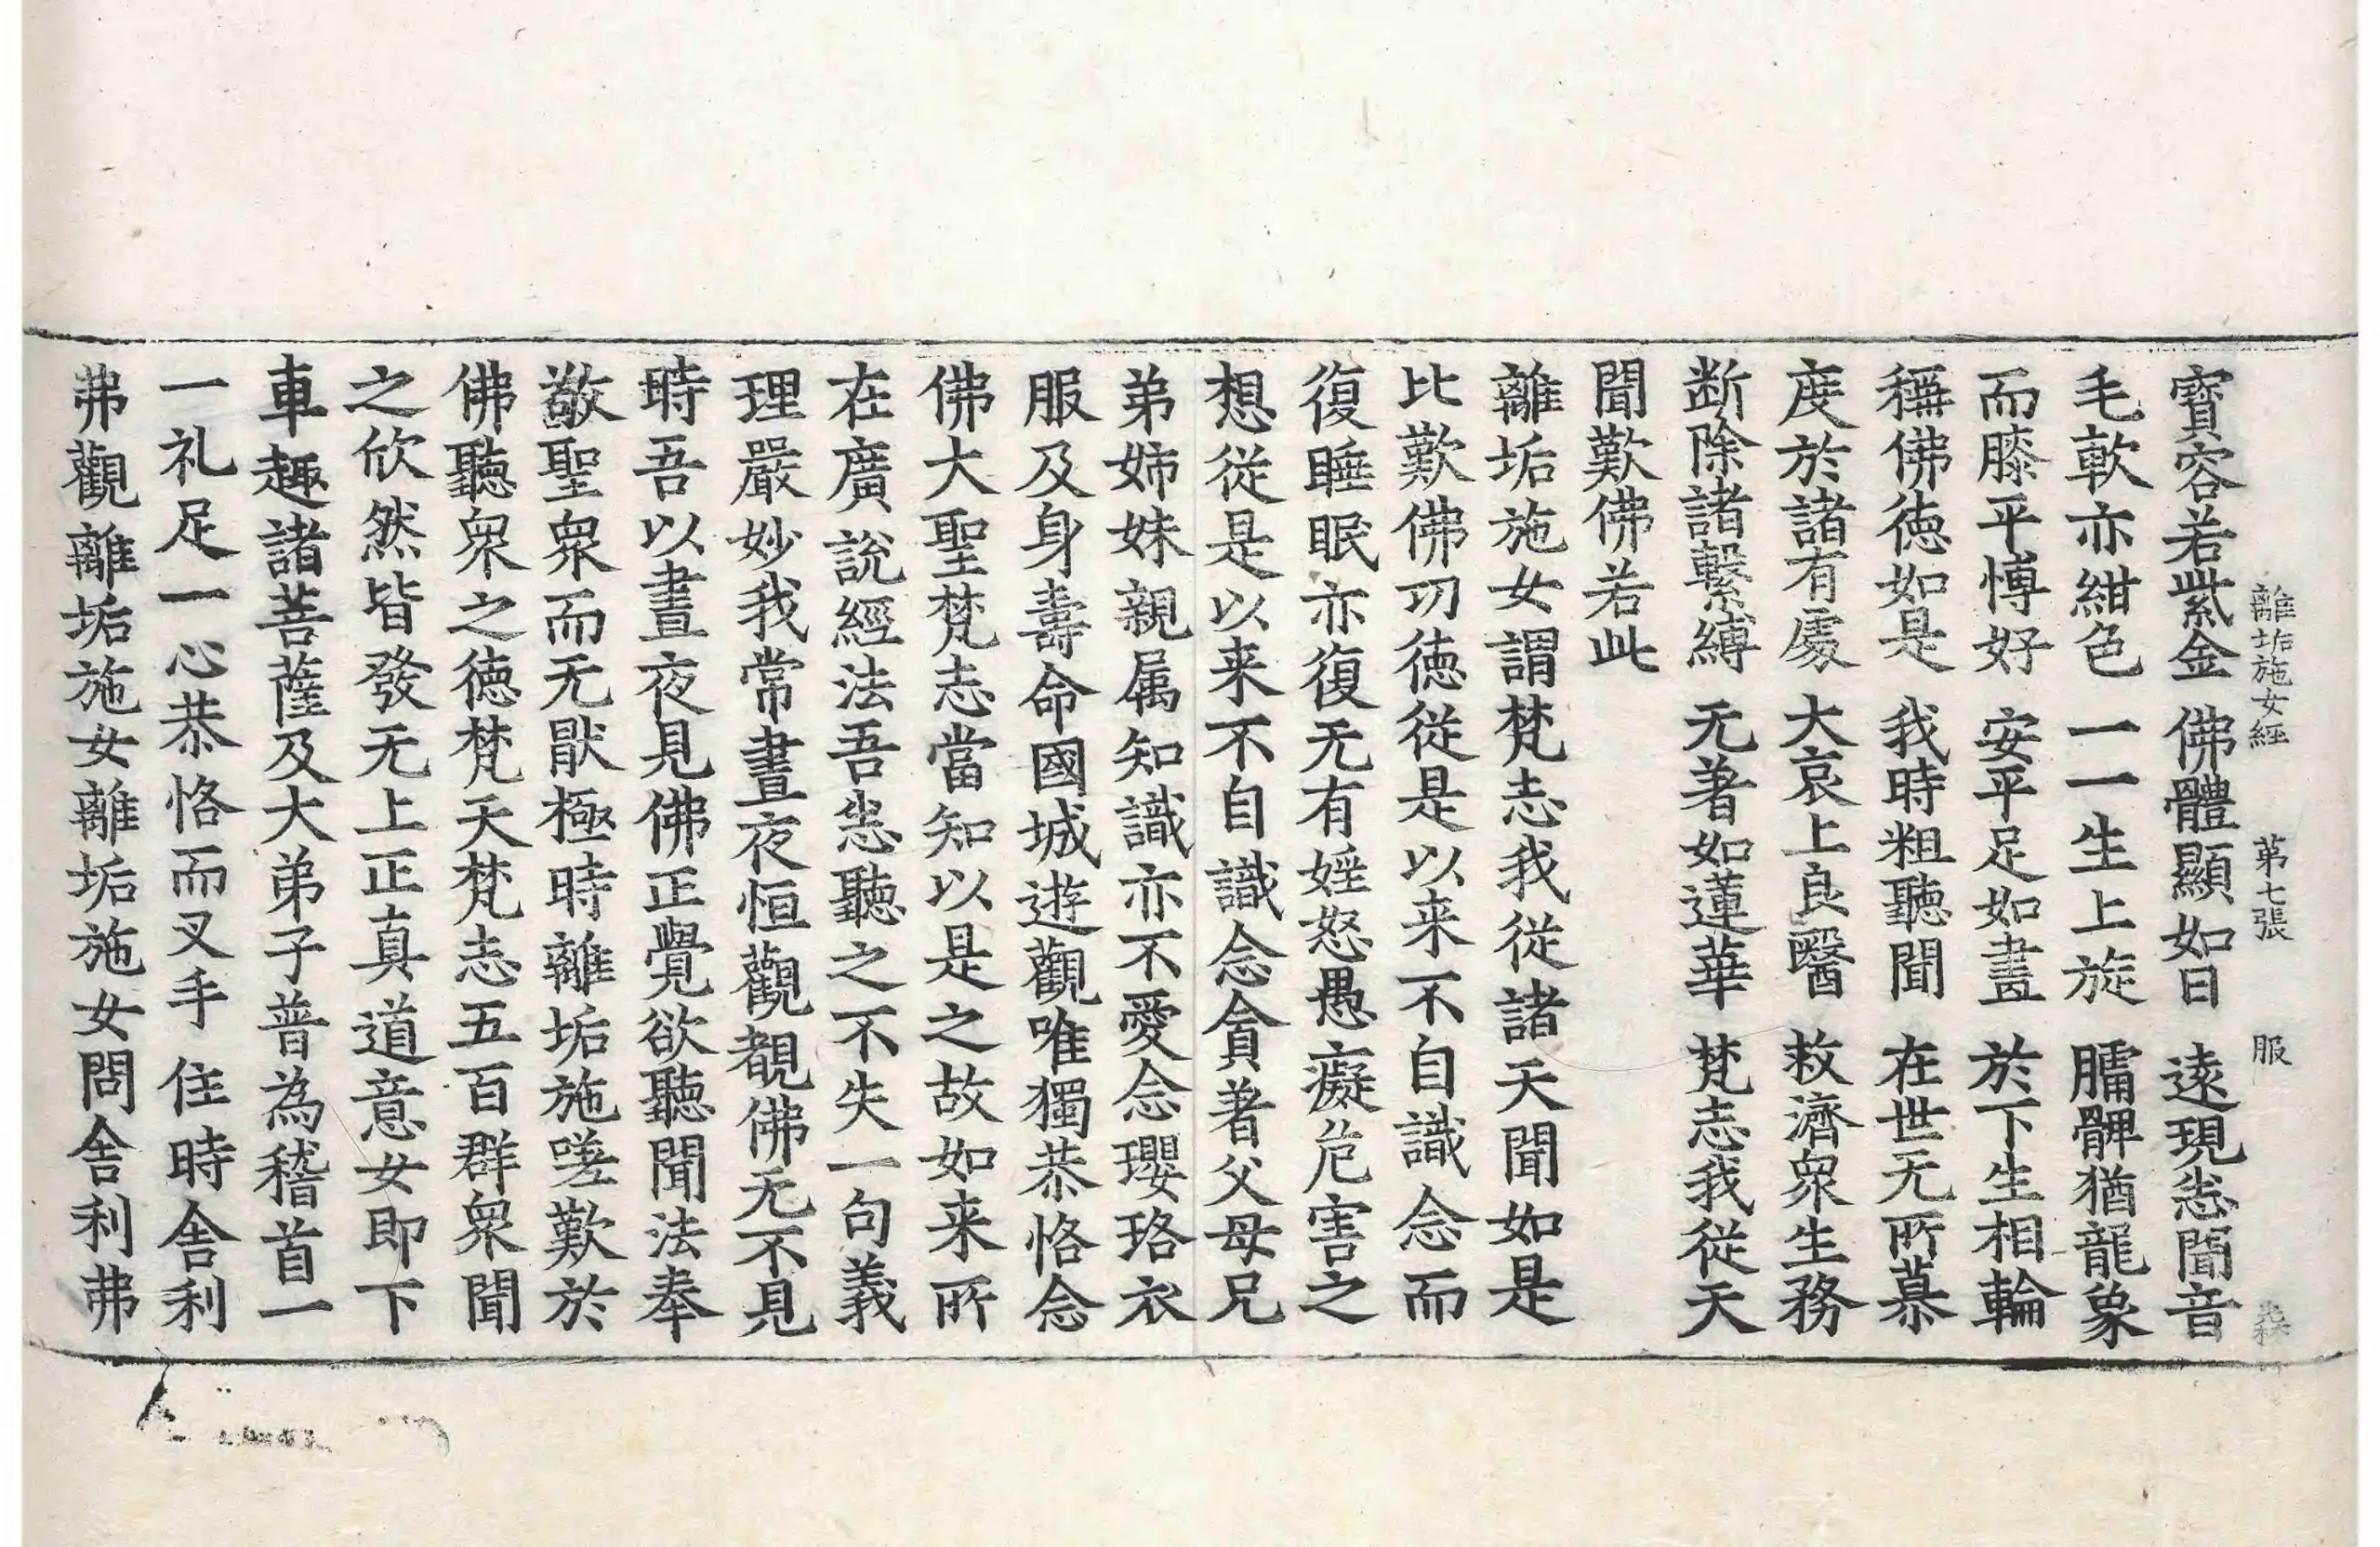 離垢施女經　第七張　服
寶容若紫金　佛體顯如日　遠現恙聞音
毛軟亦紺色　一一生上旋　𦟛髀猶龍象
而膝平慱好　安平足如畫　於下生相輪
稱佛德如是　我時粗聽聞　在世无所慕
度於諸有處　大哀上良醫　救濟衆生務
断除諸繫縛　无著如蓮華　梵志我從天
聞歎佛若此
離垢施女謂梵志我從諸天聞如是
比歎佛功德從是以来不自識念而
復睡眠亦復无有婬怒愚癡危害之
想從是以来不自識念貪著父母兄
弟姉妹親属知識亦不愛念瓔珞衣
服及身壽命國城遊觀唯獨恭恪念
佛大聖梵志當知以是之故如来所
在廣說經法吾恙聽之不失一句義
理嚴妙我常晝夜恒觀覩佛无不見
時吾以晝夜見佛正覺欲聽聞法奉
敬聖衆而无猒極時離垢施嗟歎於
佛聽衆之德梵天梵志五百群衆聞
之欣然皆發无上正真道意女即下
車趣諸菩薩及大弟子普為稽首一
一礼足一心恭恪而叉手住時舎利
弗觀離垢施女離垢施女問舎利弗